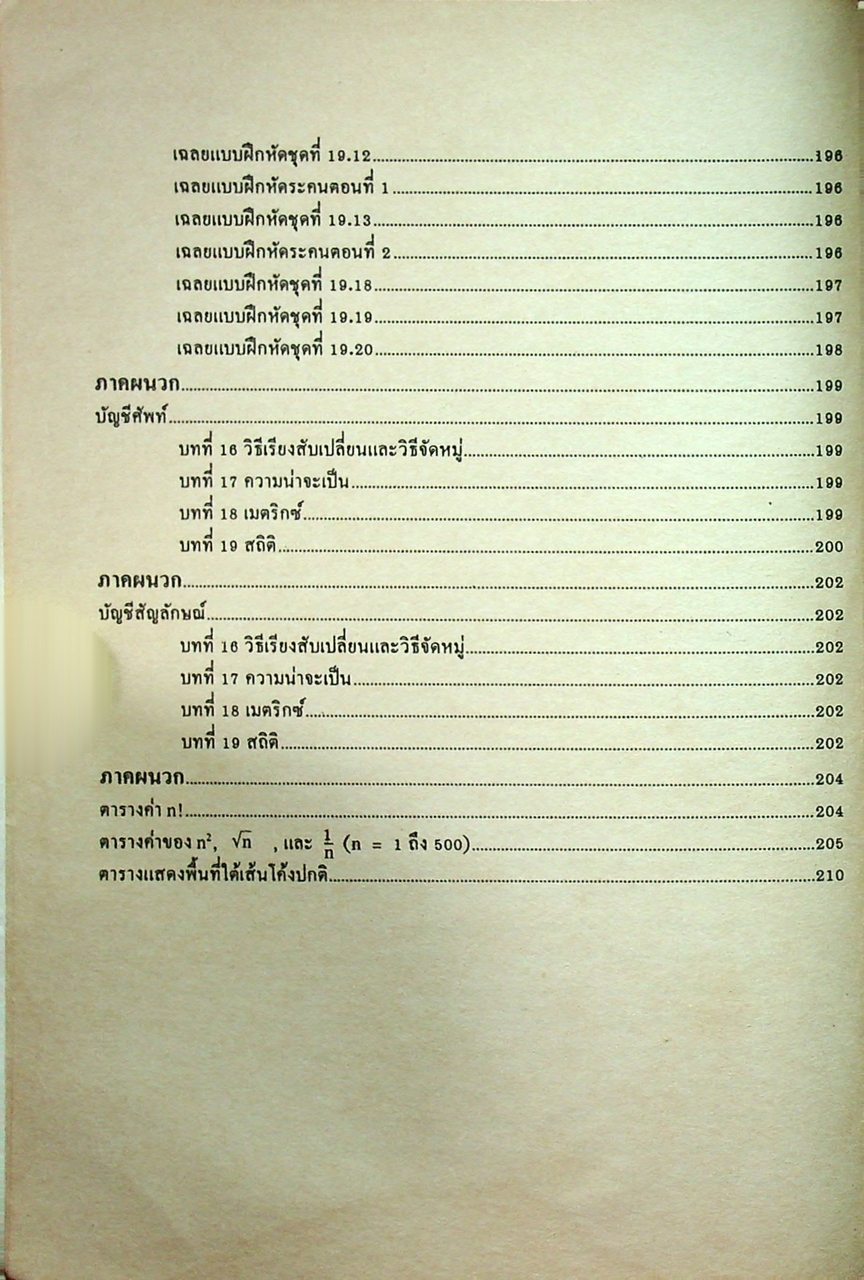 เฉลยแบบฝึกหัดชุดที่ 19.12..........196
เฉลยแบบฝึกหัดระคนตอนที่ 1..........196
เฉลยแบบฝึกหัดชุดที่ 19.13..........196
เฉลยแบบฝึกหัดระคนตอนที่ 2..........196
เฉลยแบบฝึกหัดชุดที่ 19.18..........197
เฉลยแบบฝึกหัดชุดที่ 19.19..........197
เฉลยแบบฝึกหัดชุดที่ 19.20..........198
ภาคผนวก..........199
บัญชีศัพท์..........199
บทที่ 16 วิธีเรียงสับเปลี่ยนและวิธีจัดหมู่..........199
บทที่ 17 ความน่าจะเป็น..........199
บทที่ 18 เมตริกซ์..........199
บทที่ 19 สถิติ..........200
ภาคผนวก..........202
บัญชีสัญลักษณ์..........202
บทที่ 16 วิธีเรียงสับเปลี่ยนและวิธีจัดหมู่..........202
บทที่ 17 ความน่าจะเป็น..........202
บทที่ 18 เมตริกซ์..........202
บทที่ 19 สถิติ..........202
ภาคผนวก..........204
ตารางค่า n!..........204
ตารางค่าของ n², √n , และ 1/n (n = 1 ถึง 500)..........205
ตารางแสดงพื้นที่ใต้เส้นโค้งปกติ..........210